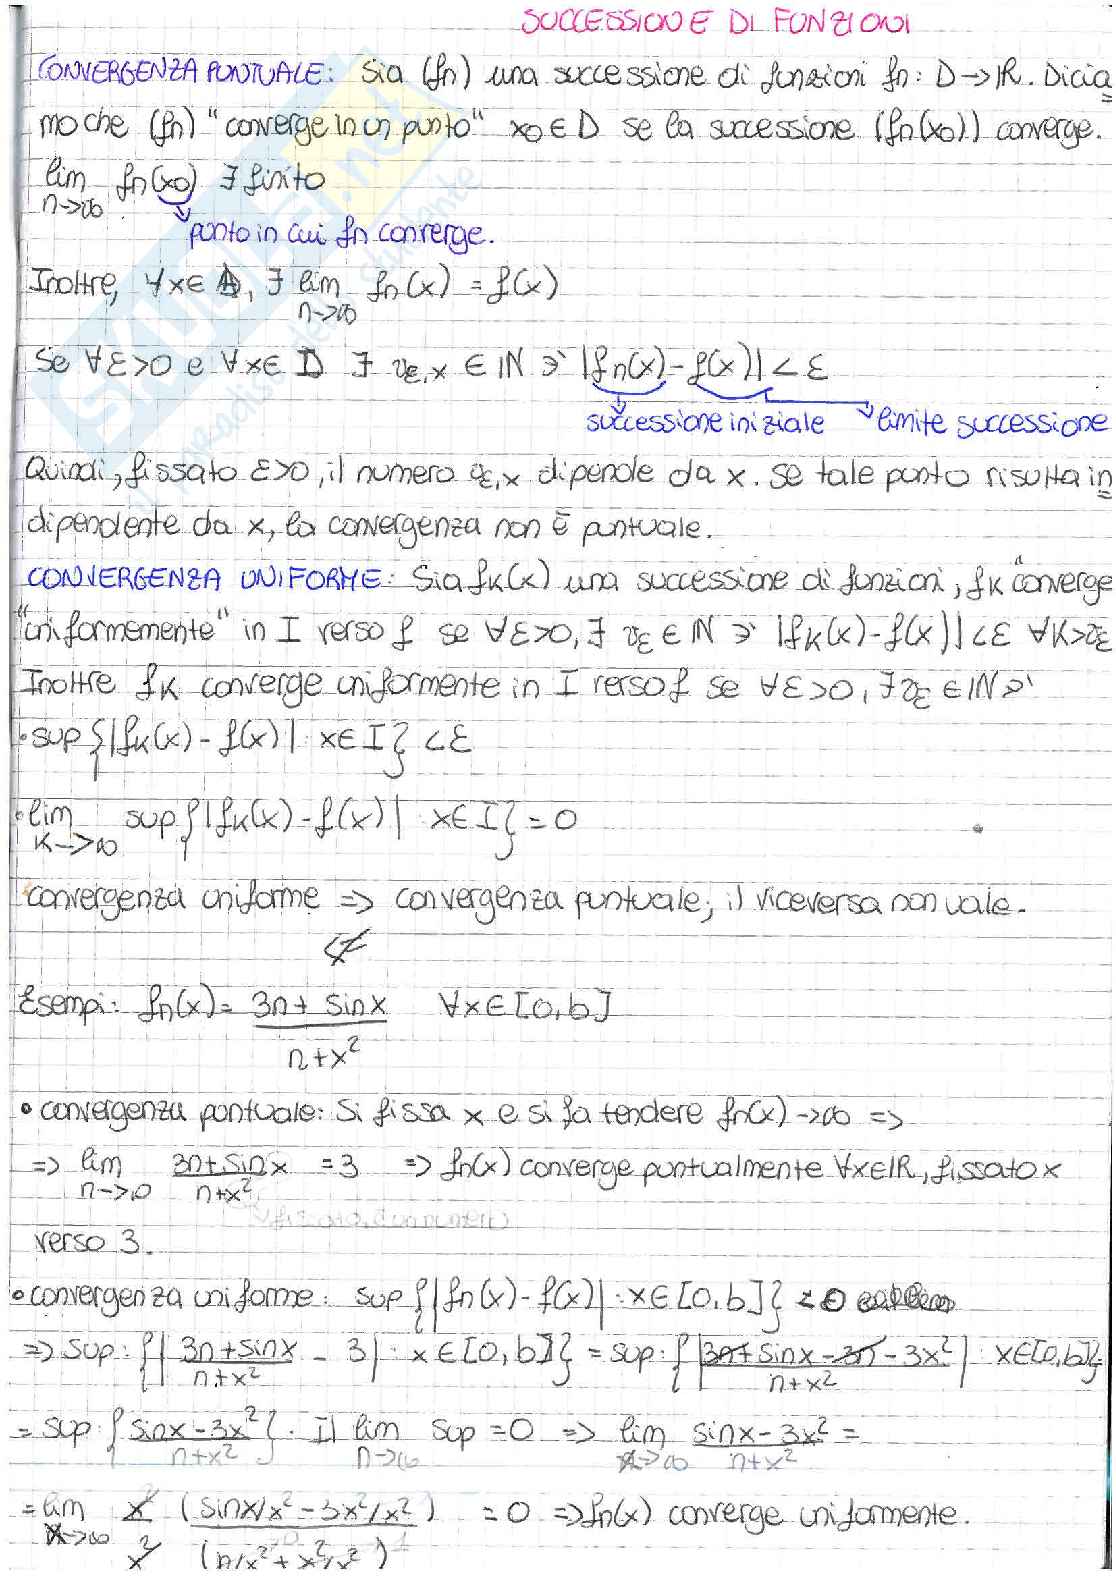 SUCCESSIONE DI FUNZIONI
CONVERGENZA PUNTUALE: Sia (fn) una successione di funzioni fn: D→ℝ. Dicia
mo che (fn) "converge in un punto" x0∈D se la successione (fn(x0)) converge.
lim n→∞ fn(x0) ∃ finito
punto in cui fn converge.
Inoltre, ∀x∈D, ∃ lim n→∞ fn(x) = f(x)
Se ∀ε>0 e ∀x∈D ∃ νε,x ∈ ℕ ∋' |fn(x)-f(x)|<ε
successione iniziale limite successione
Quindi, fissato ε>0, il numero νε,x dipende da x. Se tale punto risulta in
dipendente da x, la convergenza non è puntuale.
CONVERGENZA UNIFORME: Sia fK(x) una successione di funzioni, fK converge
"uniformemente" in I verso f se ∀ε>0, ∃ νε ∈ ℕ ∋' |fK(x)-f(x)|<ε ∀K>νε
Inoltre fK converge uniformente in I verso f se ∀ε>0, ∃νε ∈ℕ ∋'
• sup{|fK(x)-f(x)| x∈I} <ε
• lim K→∞ sup{|fK(x)-f(x)| x∈I} = 0
convergenza uniforme => convergenza puntuale; il viceversa non vale.
⇍
Esempi: fn(x)= 3n+ sinx / n+x² ∀x∈[0,b]
• convergenza puntuale: Si fissa x e si fa tendere fn(x)→∞ =>
=> lim n→∞ 3n+sinx / n+x² =3 => fn(x) converge puntualmente ∀x∈ℝ, fissato x
verso 3.
• convergenza uniforme: sup{|fn(x)-f(x)|: x∈[0,b]}
=> sup: {| 3n+sinx / n+x² - 3|: x∈[0,b]} = sup: {| 3n+sinx-3n-3x² / n+x² | x∈[0,b]}
= sup: { sinx-3x² / n+x² }. Il lim n→∞ sup =0 => lim →∞ sinx-3x² / n+x² =
= lim →∞ x² (sinx/x² -3x²/x²) / x² (n/x²+x²/x²) = 0 => fn(x) converge uniformente.